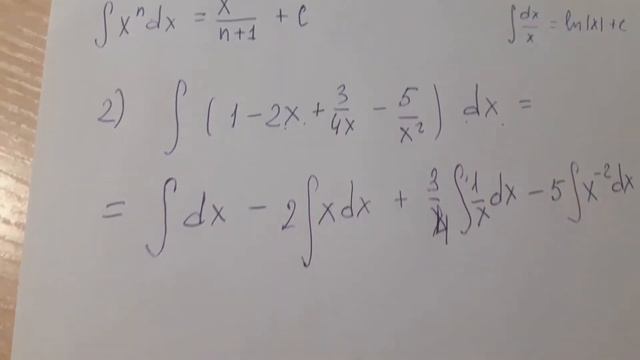 ∫xⁿdx = x/(n+1) + C
∫dx/x = ln|x| + C
2) ∫(1 - 2x + 3/(4x) - 5/x²) dx =
= ∫dx - 2∫xdx + 3/4 ∫1/x dx - 5∫x⁻²dx